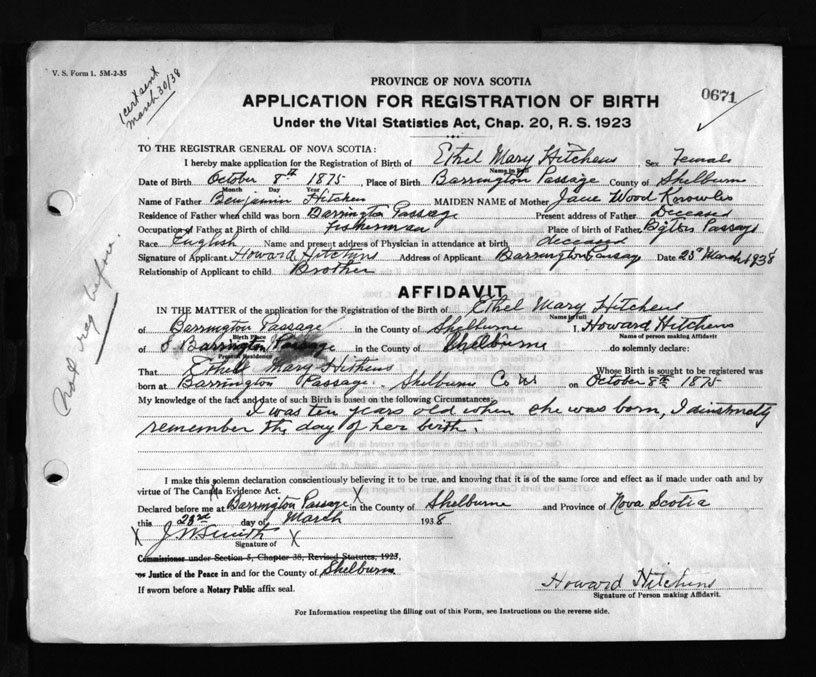 V. S. Form 1. 5M-2-35
1 cert sent
March 30/38
0671
PROVINCE OF NOVA SCOTIA
APPLICATION FOR REGISTRATION OF BIRTH
Under the Vital Statistics Act, Chap. 20, R. S. 1923
TO THE REGISTRAR GENERAL OF NOVA SCOTIA:
I hereby make application for the Registration of Birth of Ethel Mary Hitchens Sex Female
Name in Full
Date of Birth October 8th 1875, Place of Birth Barrington Passage County of Shelburne
Month Day Year
Name of Father Benjamin Hitchens MAIDEN NAME of Mother Jane Wood Knowles
Residence of Father when child was born Barrington Passage Present address of Father deceased
Occupation of Father at Birth of child Fisherman Place of birth of Father Passage
Race English Name and present address of Physician in attendance at birth deceased
Signature of Applicant Howard Hitchins Address of Applicant Barrington Passage Date 23d March 1938
Relationship of Applicant to child Brother
not reg before.
AFFIDAVIT
IN THE MATTER of the application for the Registration of the Birth of Ethel Mary Hitchens
Name in full
of Barrington Passage in the County of Shelburne I, Howard Hitchens
Birth Place Name of person making Affidavit
of Barrington Passage in the County of Shelburne do solemnly declare:
Present Residence
That Ethel Mary Hitchens Whose Birth is sought to be registered was
born at Barrington Passage. Shelburne Co NS on October 8th 1875
My knowledge of the fact and date of such Birth is based on the following Circumstances:
I was ten years old when she was born, I distinctly
remember the day of her birth.
I make this solemn declaration conscientiously believing it to be true, and knowing that it is of the same force and effect as if made under oath and by
virtue of The Canada Evidence Act.
Declared before me at Barrington Passage X in the County of Shelburne and Province of Nova Scotia
this 23rd day of March 1938
X J. W. Smith X
Signature of
Commissioner under Section 5, Chapter 38, Revised Statutes, 1923,
or Justice of the Peace in and for the County of Shelburne
If sworn before a Notary Public affix seal.
Howard Hitchins
Signature of Person making Affidavit.
For Information respecting the filling out of this Form, see Instructions on the reverse side.